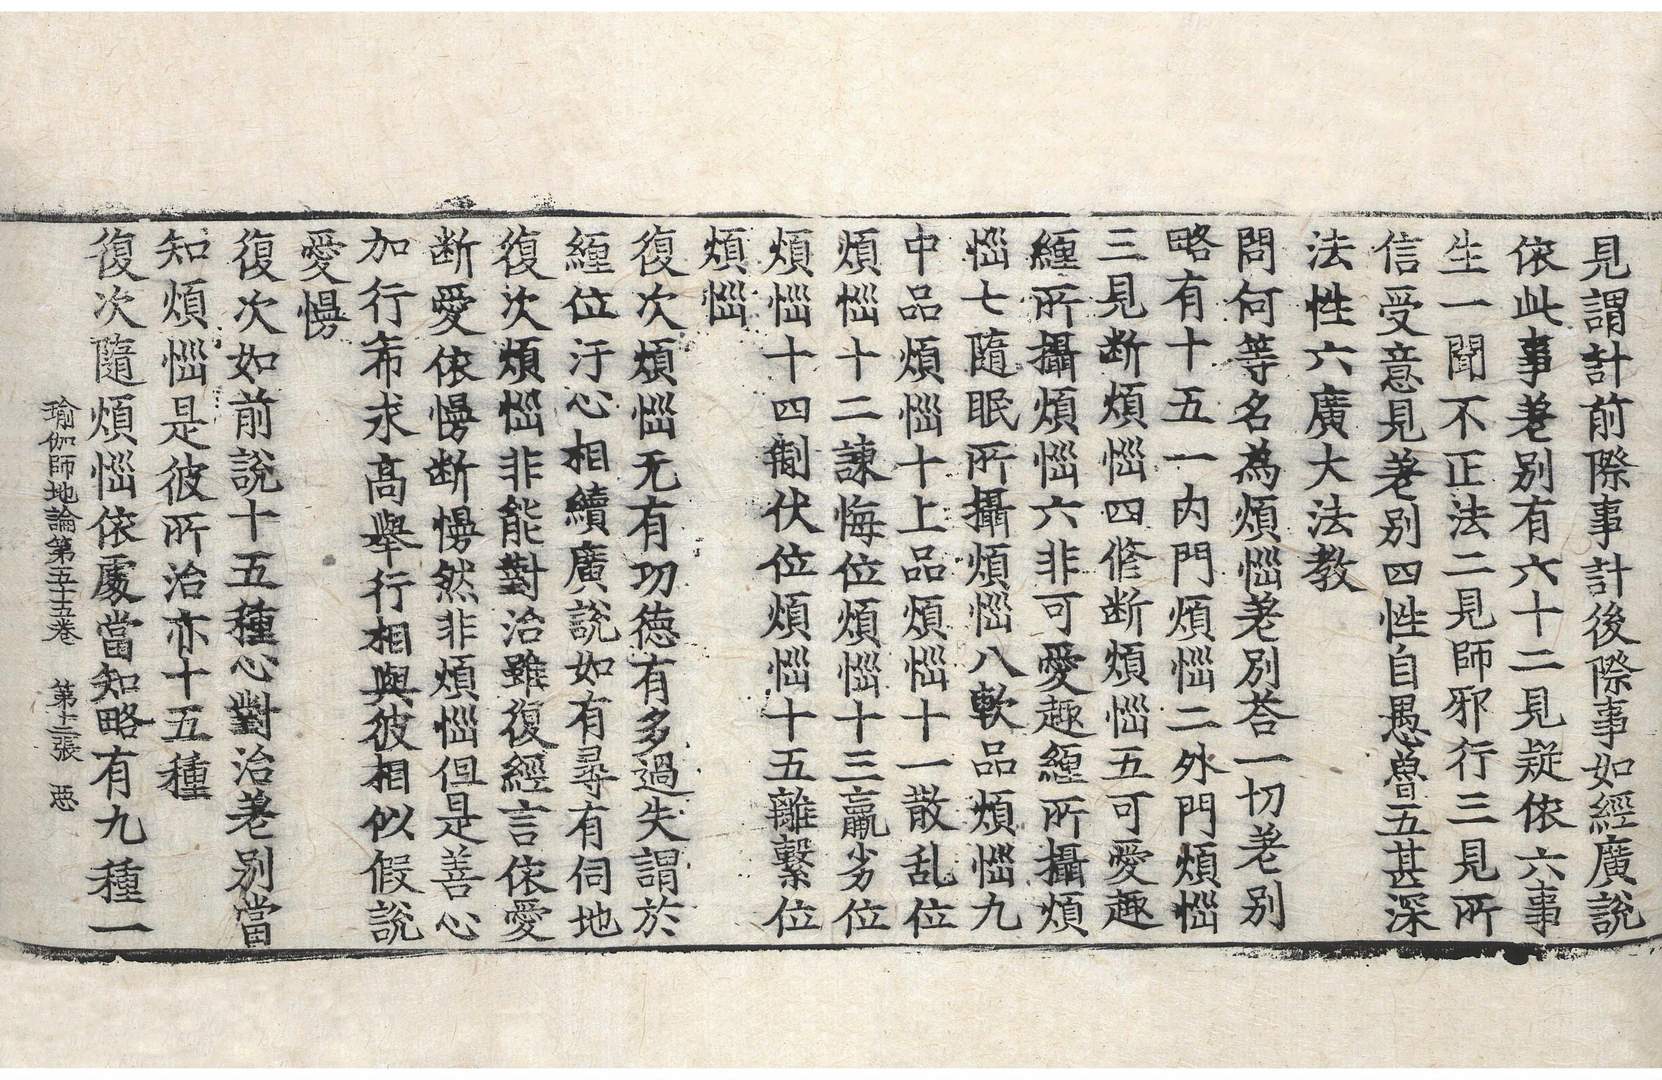 見謂計前際事計後際事如經廣說
依此事差别有六十二見疑依六事
生一聞不正法二見師邪行三見所
信受意見差别四性自愚魯五甚深
法性六廣大法教
問何等名為煩惱差別荅一切差别
略有十五一内門煩惱二外門煩惱
三見断煩惱四脩断煩惱五可愛趣
纏所攝煩惱六非可愛趣纏所攝煩
惱七隨眠所攝煩惱八軟品煩惱九
中品煩惱十上品煩惱十一散乱位
煩惱十二諫悔位煩惱十三羸劣位
煩惱十四制伏位煩惱十五離繫位
煩惱
復次煩惱无有功德有多過失謂於
纏位汙心相續廣說如有尋有伺地
復次煩惱非能對治雖復經言依愛
断愛依慢断慢然非煩惱但是善心
加行希求高舉行相與彼相似假說
愛慢
復次如前說十五種心對治差别當
知煩惱是彼所治亦十五種
復次隨煩惱依處當知略有九種一
瑜伽師地論第五十五卷 第十二張 惡